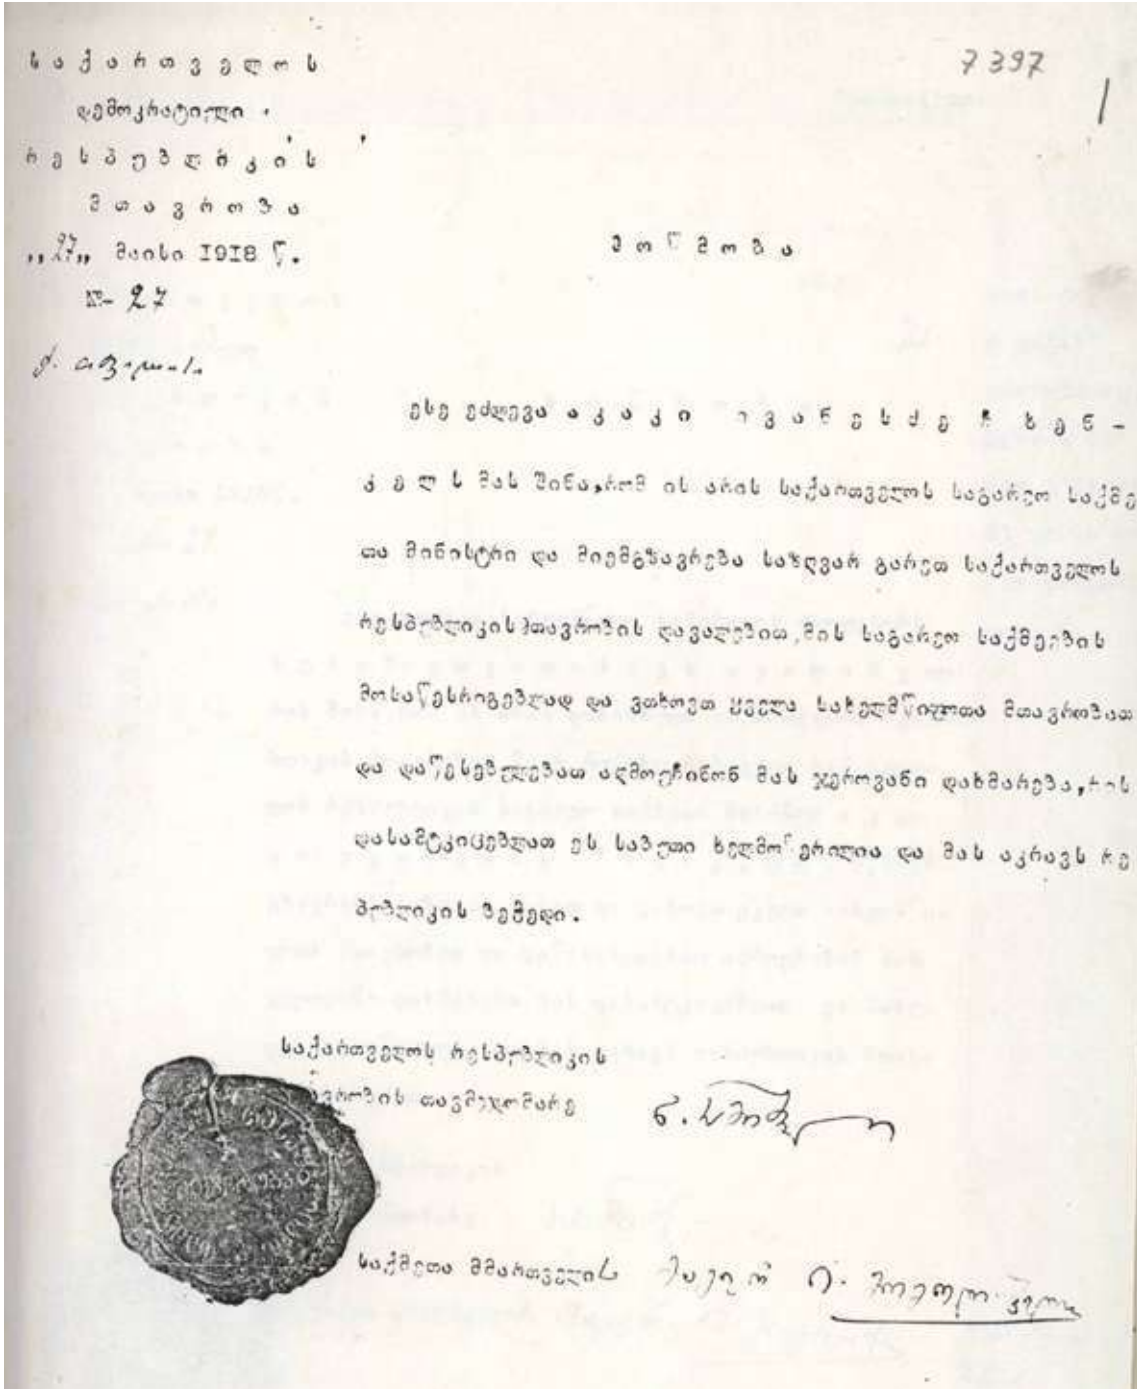 საქართველოს
7397
1
დემოკრატიული
რესპუბლიკის
მთავრობა
„27„ მაისი 1918 წ.
მოწმობა
№ 27
ქ. თფილისი
ესე ეძლევა აკაკი ივანეს ძე ჩხენ-
კელს მას შინა, რომ ის არის საქართველოს საგარეო საქმე
თა მინისტრი და მიემგზავრება საზღვარ გარეთ საქართველოს
რესპუბლიკის მთავრობის დავალებით, მის საგარეო საქმეების
მოსაწესრიგებლად და ვთხოვთ ყველა სახელმწიფოთა მთავრობათ
და დაწესებულებათ აღმოუჩინონ მას ჯეროვანი დახმარება, რის
დასამტკიცებლათ ეს საბუთი ხელმოწერილია და მას აკრავს რე
პუბლიკის ბეჭედი.
საქართველოს რესპუბლიკის
ავრობის თავმჯდომარე ნ.
საქმეთა მმართველის